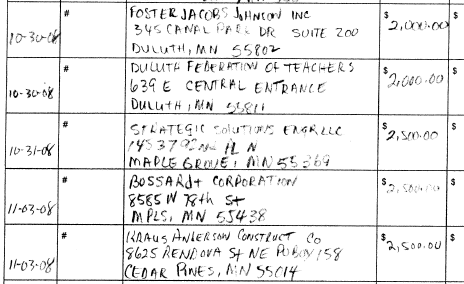 # FOSTER JACOBS JOHNSON INC $
345 CANAL PARK DR SUITE 200 2,000.00
10-30-08 DULUTH, MN 55802
# DULUTH FEDERATION OF TEACHERS $
639 E CENTRAL ENTRANCE 2,000.00
10-30-08 DULUTH, MN 55811
# STRATEGIC SOLUTIONS ENGR LLC $
PL N 2,500.00
10-31-08 MAPLE GROVE, MN 55369
# BOSSARDT CORPORATION $
8585 W 78th St 2,500.00
11-03-08 MPLS, MN 55438
# KRAUS ANDERSON CONSTRUCT CO $
8625 RENDOVA St NE PO BOX 158 2,500.00
11-03-08 CEDAR PINES, MN 55014